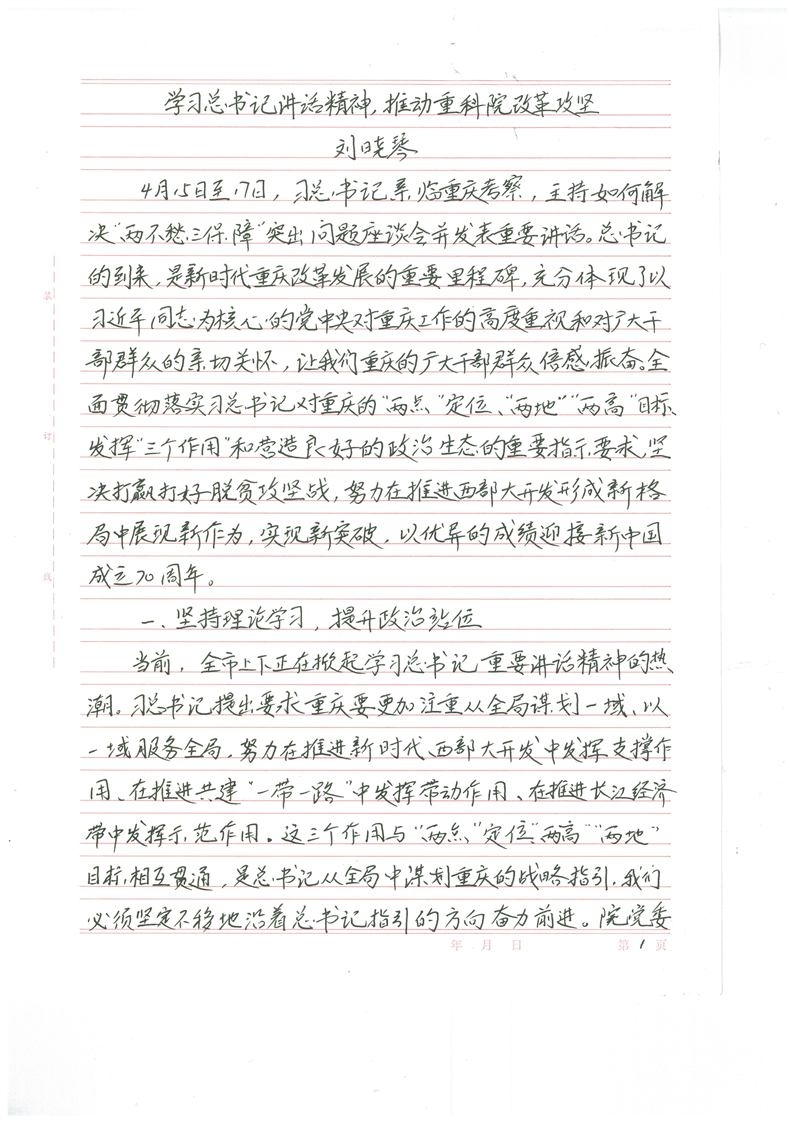 学习总书记讲话精神，推动重科院改革攻坚
刘晓琴
4月15日至17日，习总书记亲临重庆考察，主持如何解
决“两不愁三保障”突出问题座谈会并发表重要讲话。总书记
的到来，是新时代重庆改革发展的重要里程碑，充分体现了以
习近平同志为核心的党中央对重庆工作的高度重视和对广大干
部群众的亲切关怀，让我们重庆的广大干部群众倍感振奋。全
面贯彻落实习总书记对重庆的“两点”定位、“两地”“两高”目标、
发挥“三个作用”和营造良好的政治生态的重要指示要求，坚
决打赢打好脱贫攻坚战，努力在推进西部大开发形成新格
局中展现新作为，实现新突破，以优异的成绩迎接新中国
成立70周年。
一、坚持理论学习，提升政治站位
当前，全市上下正在掀起学习总书记重要讲话精神的热
潮。习总书记提出要求重庆要更加注重从全局谋划一域、以
一域服务全局，努力在推进新时代西部大开发中发挥支撑作
用、在推进共建“一带一路”中发挥带动作用、在推进长江经济
带中发挥示范作用。这三个作用与“两点”定位“两高”“两地”
目标相互贯通，是总书记从全局中谋划重庆的战略指引，我们
必须坚定不移地沿着总书记指引的方向奋力前进。院院委
年 月 日 第1页
装
订
线